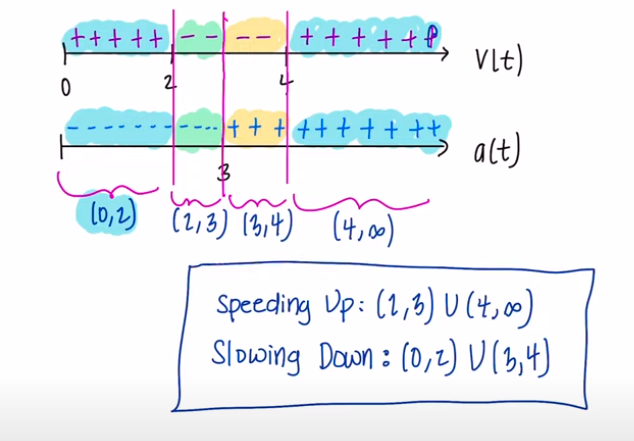 + + + + + - - - - + + + + + +
V(t)
0 2 4
- - - - - - - - - - - - + + + + + + + + + +
a(t)
3
(0,2) (2,3) (3,4) (4,∞)
Speeding Up: (2,3) U (4,∞)
Slowing Down: (0,2) U (3,4)